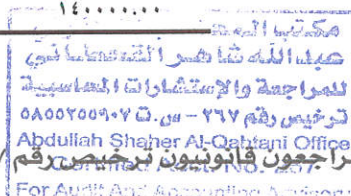 ١٤٠٠٠٠.٠٠
مكتب
عبدالله شاهر القحطاني
للمراجعة والإستشارات المحاسبية
ترخيص رقم ٢٦٧ - س.ت ٥٨٥٥٢٥٥٩٠٧
Abdullah Shaher Al-Qahtani Office
راجعون قانونيون ترخيص رقم /
NO.
For Audit And Accounting